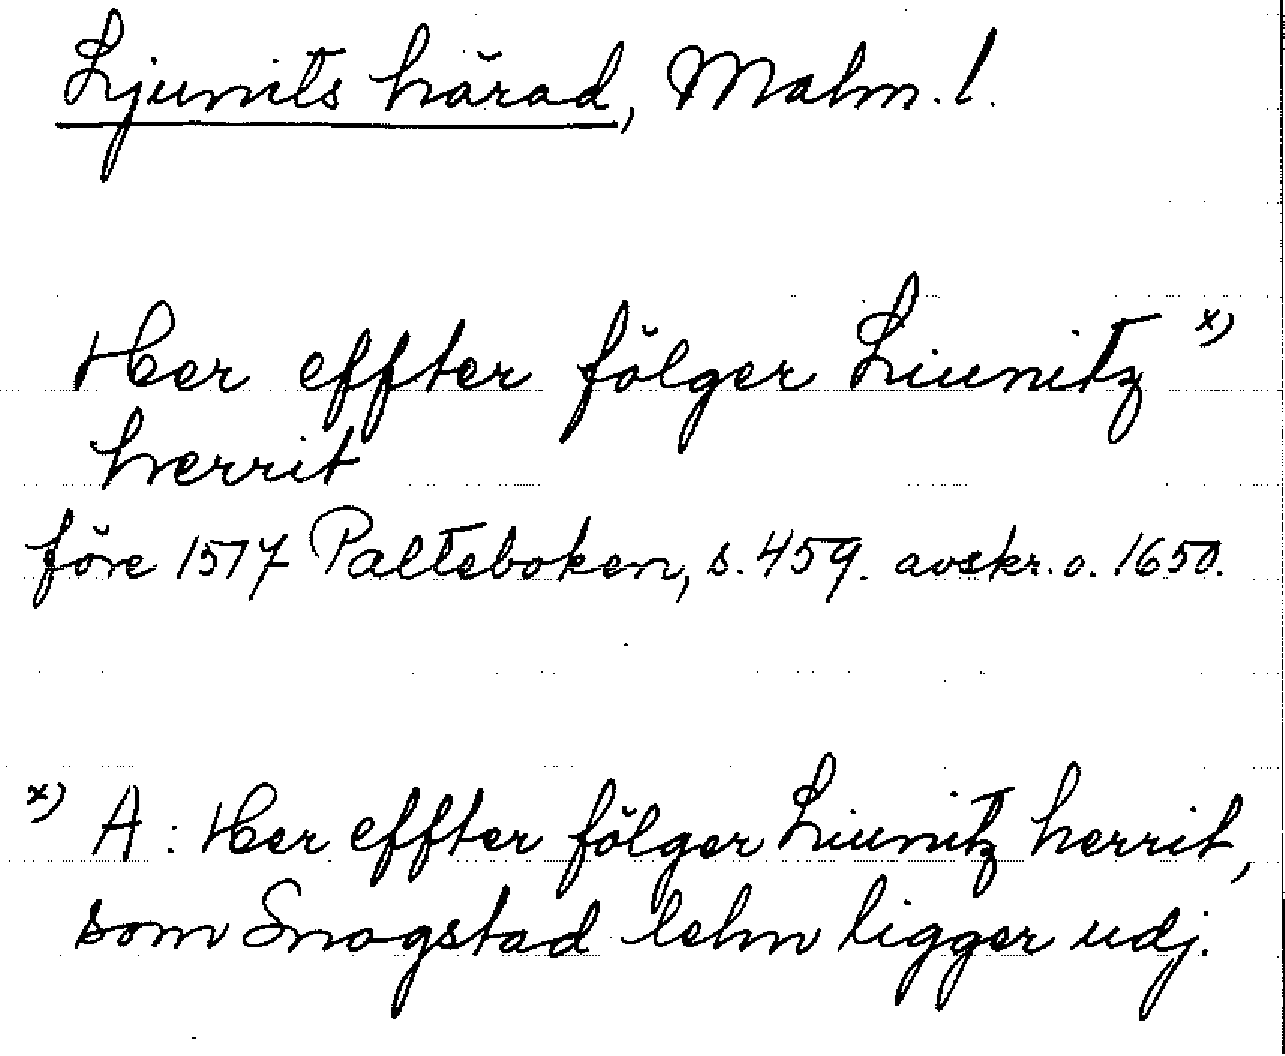 Ljunits härad, Malm. l.
Her effter fölger Liunitz x)
herrit
före 1517 Palteboken, s. 459. avskr. o. 1650.
x) A: Her effter fölger Liunitz herrit,
som Snogstad lehn ligger udj.